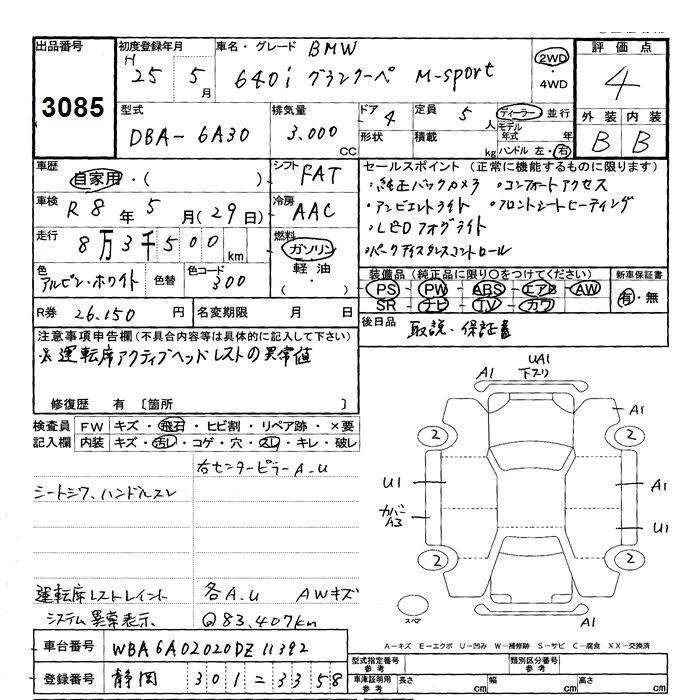 出品番号
3085
初度登録年月
H 25年 5月
車名・グレード BMW
640i グランクーペ M-sport
2WD
・
4WD
評価点
4
型式
DBA-6A30
排気量
3.000
CC
ドア 4
形状
定員 5 人
積載 kg
ディーラー・並行
モデル年式 年
ハンドル 左・右
外装 内装
B B
車歴
自家用・( )
シフト FAT
車検 R8年5月(29日)
冷房 AAC
走行 8万3千500km
燃料
ガソリン
軽油
・( )
色 アルピン・ホワイト 色替 色コード 300
R券 26.150円 名変期限 月 日
セールスポイント (正常に機能するものに限ります)
・純正バックカメラ ・コンフォートアクセス
・アンビエントライト ・フロントシートヒーティング
・LEDフォグライト
・パークディスタンスコントロール
装備品(純正品に限り○をつけてください)
PS・PW・ABS・エアB・AW
SR・ナビ・TV・カワ
新車保証書
有・無
後日品 取説・保証書
注意事項申告欄(不具合内容等は具体的に記入して下さい)
※運転席アクティブヘッドレストの異常値
修復歴 有〔箇所 〕
検査員記入欄
FW キズ・飛石・ヒビ割・リペア跡・×要
内装 キズ・汚レ・コゲ・穴・スレ・キレ・破レ
右センターピラーA.U
シートシワ、ハンドルスレ
運転席レストレイント
システム異常表示
各A.U AWキズ
@83,407km
UA1
下スリ
A1
A1
2
2
U1
A1
カバー
A3
U1
2
2
スペア
A1
A-キズ E-エクボ U-凹み W-補修跡 S-サビ C-腐食 XX-交換済
車台番号 WBA6A02020DZ11392
登録番号 静岡 301 = 3358
型式指定番号
参考
類別区分番号
参考
車庫証明用
参考
長さ cm 幅 cm 高さ cm